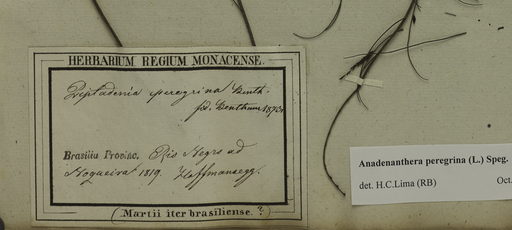 HERBARIUM REGIUM MONACENSE.
Piptadenia peregrina Benth.
fid. Bentham 1870.
Brasilia Provinc. Rio Negro ad
Nogueira 1819. Hoffmansegg.
(Martii iter brasiliense.?)
Anadenanthera peregrina (L.) Speg.
det. H.C.Lima (RB)
Oct.